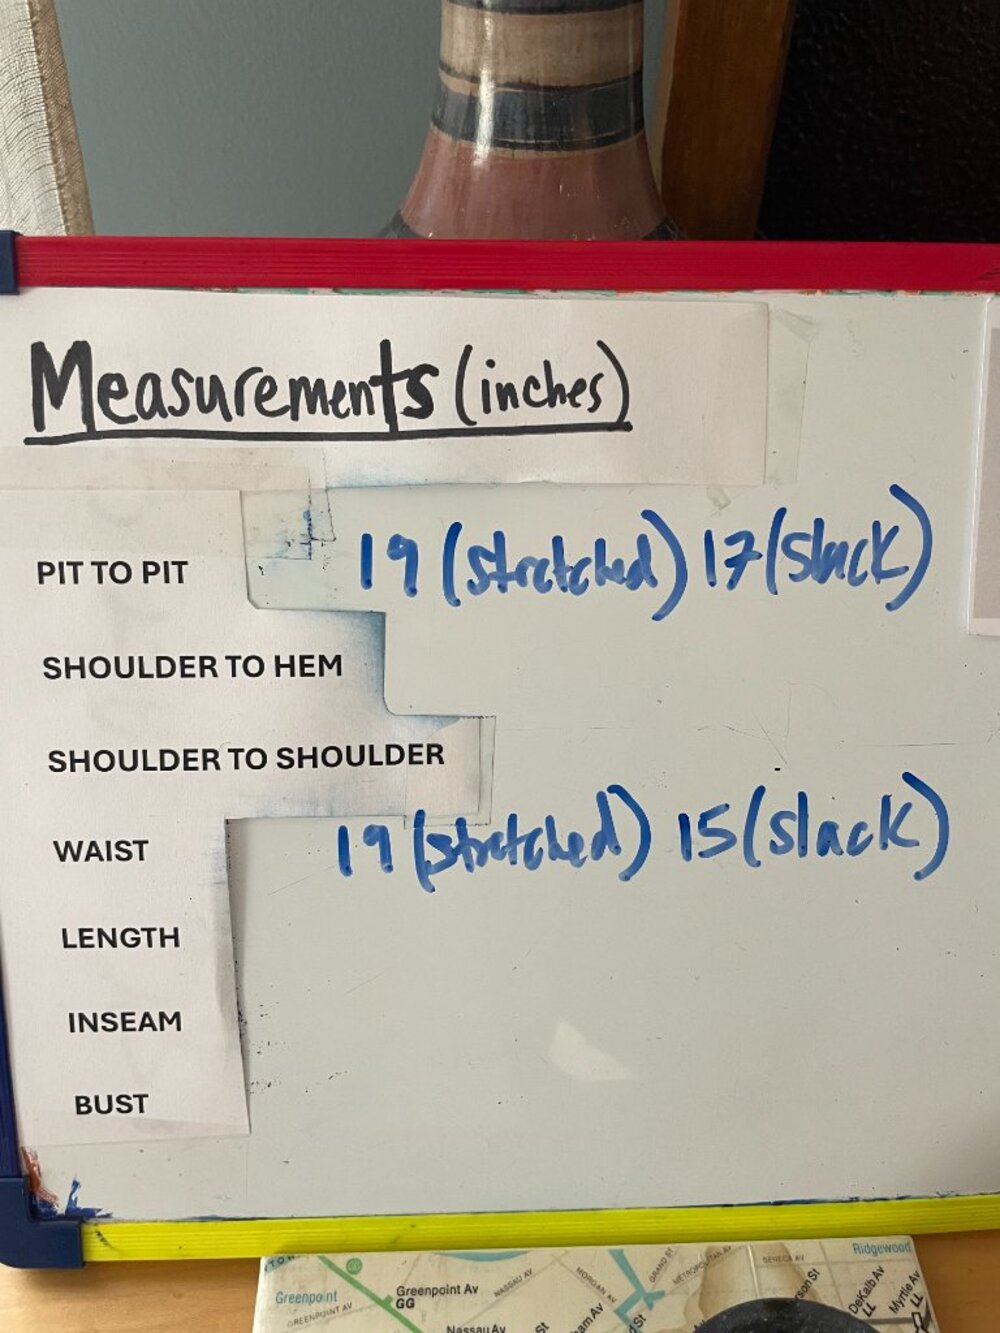 Measurements (inches)
PIT TO PIT 19 (stretched) 17 (slack)
SHOULDER TO HEM
SHOULDER TO SHOULDER
WAIST 19 (stretched) 15 (slack)
LENGTH
INSEAM
BUST
Ridgewood
Greenpoint
GREENPOINT AV
Greenpoint Av
GG
NASSAU AV
Nassau Av
MORGAN AV
GRAND ST
METROPOLITAN AV
SENECA AV
DeKalb Av
LL
Myrtle Av
LL